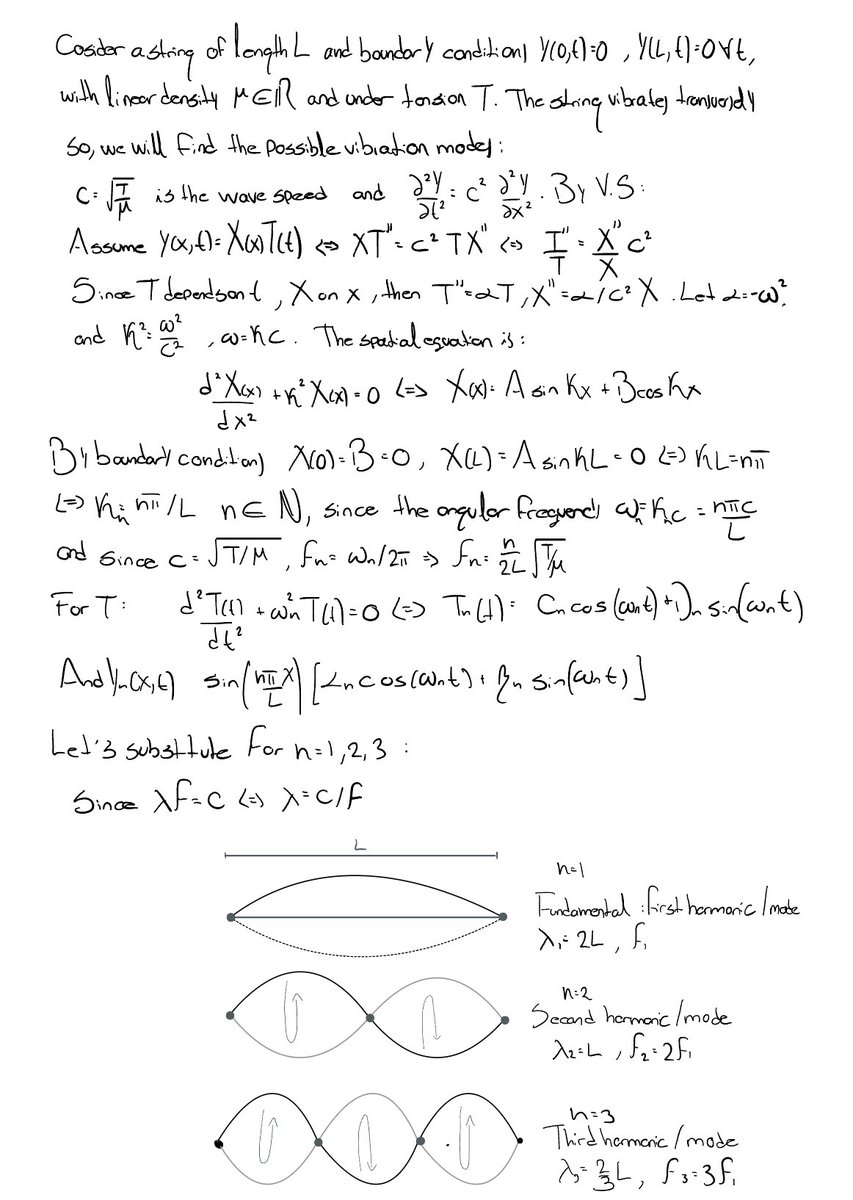 Cosider a string of length L and boundary conditions Y(0,t)=0 , Y(L,t)=0 ∀t,
with linear density μ∈ℝ and under tension T. The string vibrates transversly
so, we will find the possible vibration modes:
C=√(T/μ) is the wave speed and ∂²Y/∂t² = c² ∂²Y/∂x² . By V.S:
Assume Y(x,t)=X(x)T(t) <=> XT''=c² TX'' <=> T''/T = X''/X c²
Since T depends on t , X on x , then T''=αT , X''=α/c² X . Let α=-ω².
and K²=ω²/c² , ω=Kc . The spatial equation is:
d²X(x)/dx² + K² X(x)=0 <=> X(x)= A sin Kx + B cos Kx
By boundary conditions X(0)=B=0 , X(L)=A sin KL=0 <=> KL=nπ
<=> Kn=nπ/L n∈ℕ, since the angular frequency ωn=Knc = nπc/L
and since c=√(T/μ) , fn=ωn/2π => fn= n/2L √(T/μ)
For T: d²T(t)/dt² + ωn² T(t)=0 <=> Tn(t)= Cn cos(ωnt)+Dn sin(ωnt)
And Yn(x,t) sin(nπ/L x) [αn cos(ωnt) + βn sin(ωnt)]
Let's substtute for n=1,2,3 :
Since λf=c <=> λ=c/f
L
n=1
Fundamental : first harmonic/mode
λ₁=2L , f₁
n=2
Second harmonic/mode
λ₂=L , f₂=2f₁
n=3
Third harmonic/mode
λ₃=2/3 L , f₃=3f₁